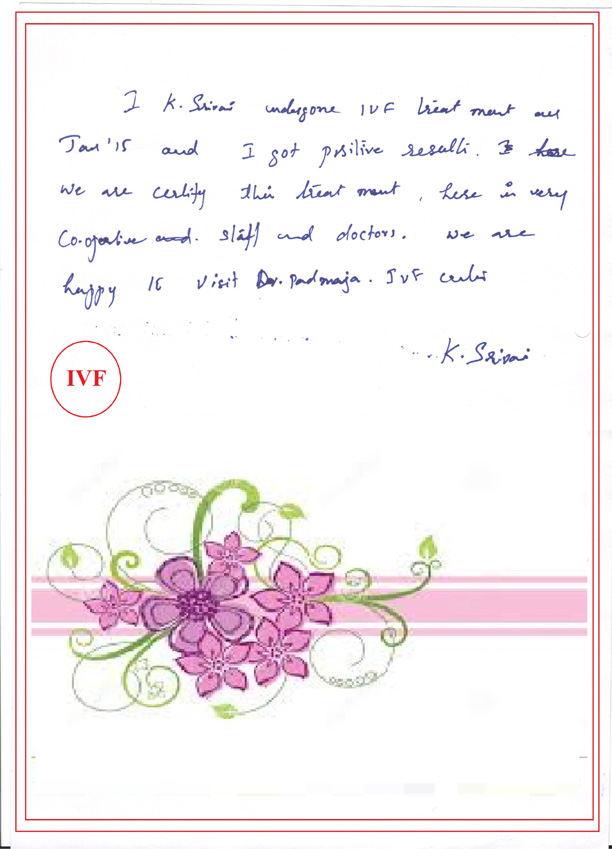 I K. Srivai undergone IVF treat ment on
Jan '15 and I got positive results. I have
we are certify this treat ment, here is very
Co.operative and. staff and doctors. we are
happy to visit Dr. Padmaja. IVF center
K. Srivai
IVF